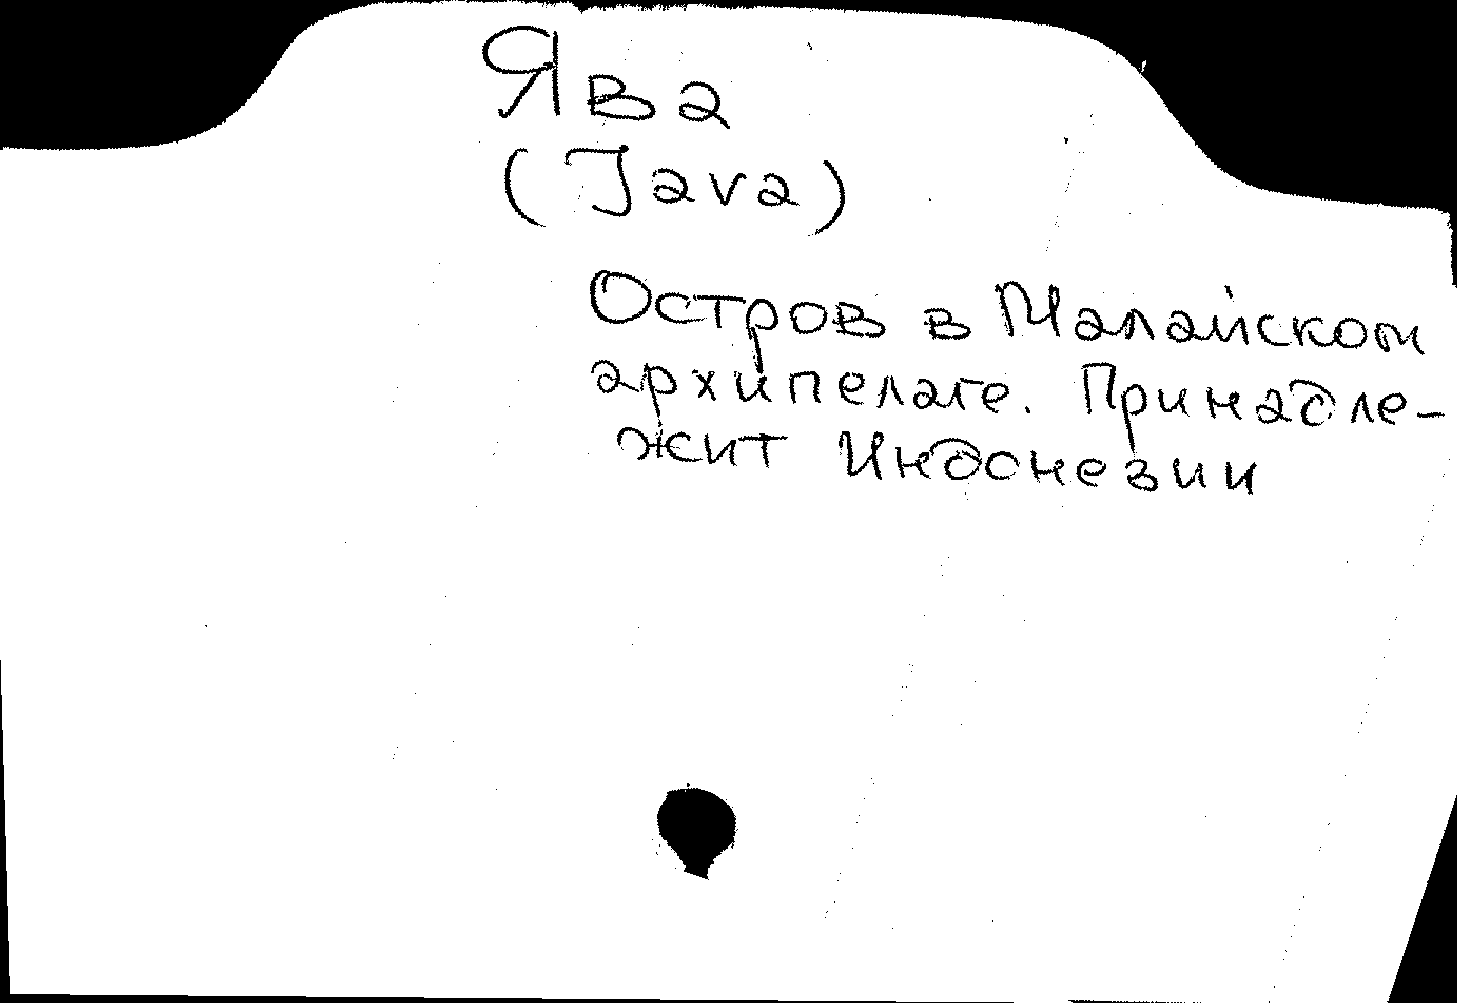 Ява
(Java)
Остров в Малайском
архипелаге. Принадле-
жит Индонезии